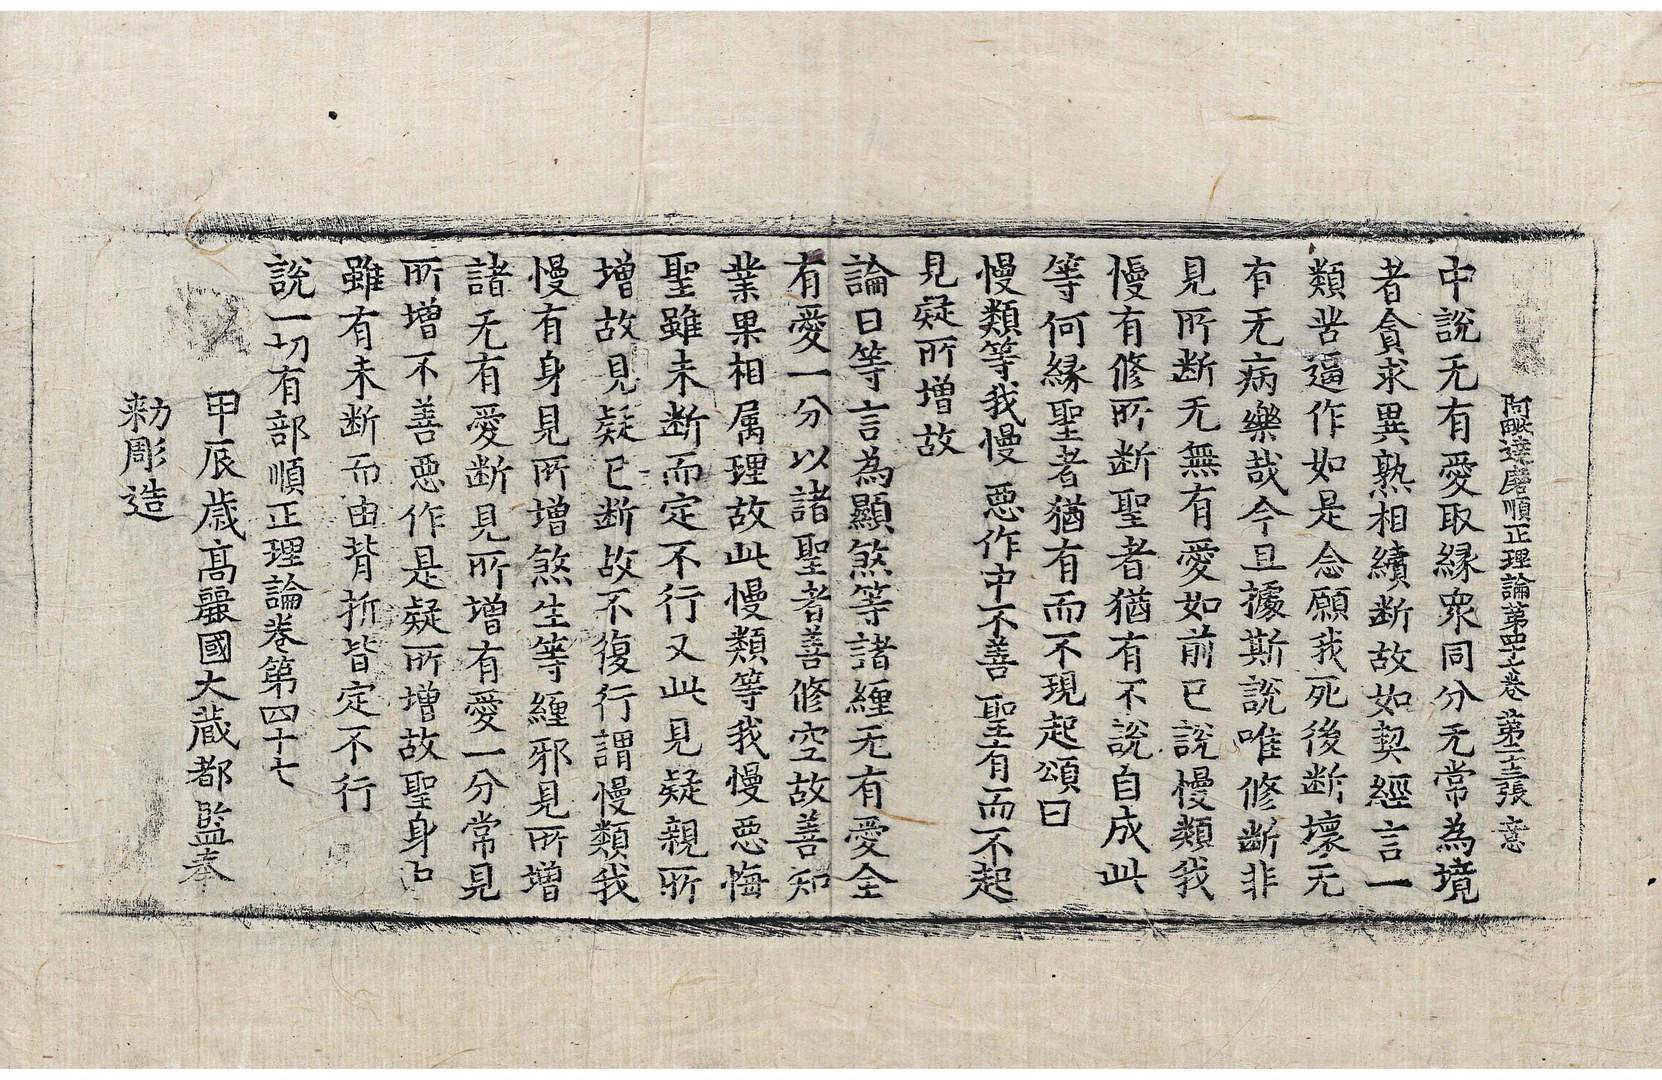 阿毗達磨順正理論第四十七卷 第二十三張 意
中說无有愛取緣衆同分无常為境
者貪求異熟相續断故如契經言一
類苦逼作如是念願我死後断壞无
有无病樂哉今且據斯說唯修断非
見所断无無有愛如前已說慢類我
慢有修所断聖者猶有不說自成此
等何緣聖者猶有而不現起頌曰
慢類等我慢 惡悔中不善 聖有而不起
見疑所增故
論曰等言為顯煞等諸纏无有愛全
有愛一分以諸聖者善修空故善知
業果相属理故此慢類等我慢惡悔
聖雖未断而定不行又此見疑親所
增故見疑已断故不復行謂慢類我
慢有身見所增煞生等纏邪見所增
諸无有愛断見所增有愛一分常見
所增不善惡作是疑所增故聖身中
雖有未断而由背折皆定不行
說一切有部順正理論卷第四十七
甲辰歳高麗國大藏都監奉
勑彫造